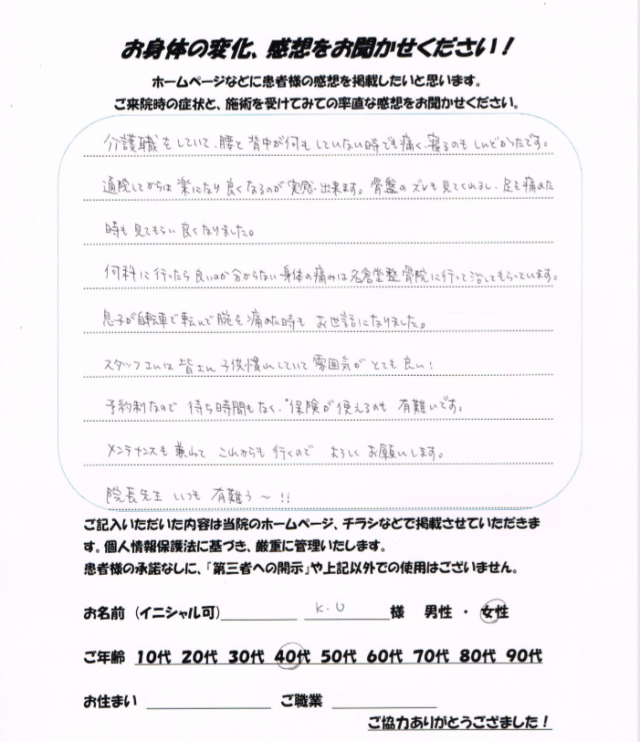 お身体の変化、感想をお聞かせください！
ホームページなどに患者様の感想を掲載したいと思います。
ご来院時の症状と、施術を受けてみての率直な感想をお聞かせください。
介護職をしていて、腰と背中が何もしていない時でも痛く、寝るのもしんどかったです。
通院してからは楽になり良くなるのが実感出来ます。骨盤のズレも見てくれるし、足を痛めた
時も見てもらい良くなりました。
何科に行ったら良いのか分からない身体の痛みは名倉堂整骨院に行って治してもらっています。
息子が自転車で転んで腕を痛めた時も お世話になりました。
スタッフさんは皆さん子供慣れしていて雰囲気がとても良い！
予約制なので 待ち時間もなく、保険が使えるのも 有難いです。
メンテナンスも兼ねて これからも行くので よろしくお願いします。
院長先生 いつも 有難う〜!!
ご記入いただいた内容は当院のホームページ、チラシなどで掲載させていただきま
す。個人情報保護法に基づき、厳重に管理いたします。
患者様の承諾なしに、「第三者への開示」や上記以外での使用はございません。
お名前（イニシャル可） K.U 様 男性 ・ 女性
ご年齢 10代 20代 30代 40代 50代 60代 70代 80代 90代
お住まい ご職業
ご協力ありがとうござました！